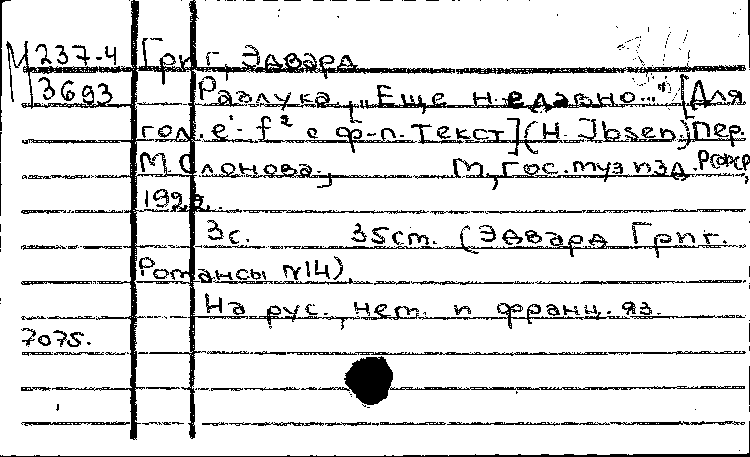 М 237-4 Григ, Эдвард
3693 Разлука. „Еще недавно..." [Для
гол. e'-f² с ф-п. Текст] (H. Ibsen.) Пер.
М. Слонова., М, Гос. муз изд. РСФСР,
192
3с. 35cm. (Эдвард Григ.
Романсы №14).
На рус., нем. и франц. яз.
7075.